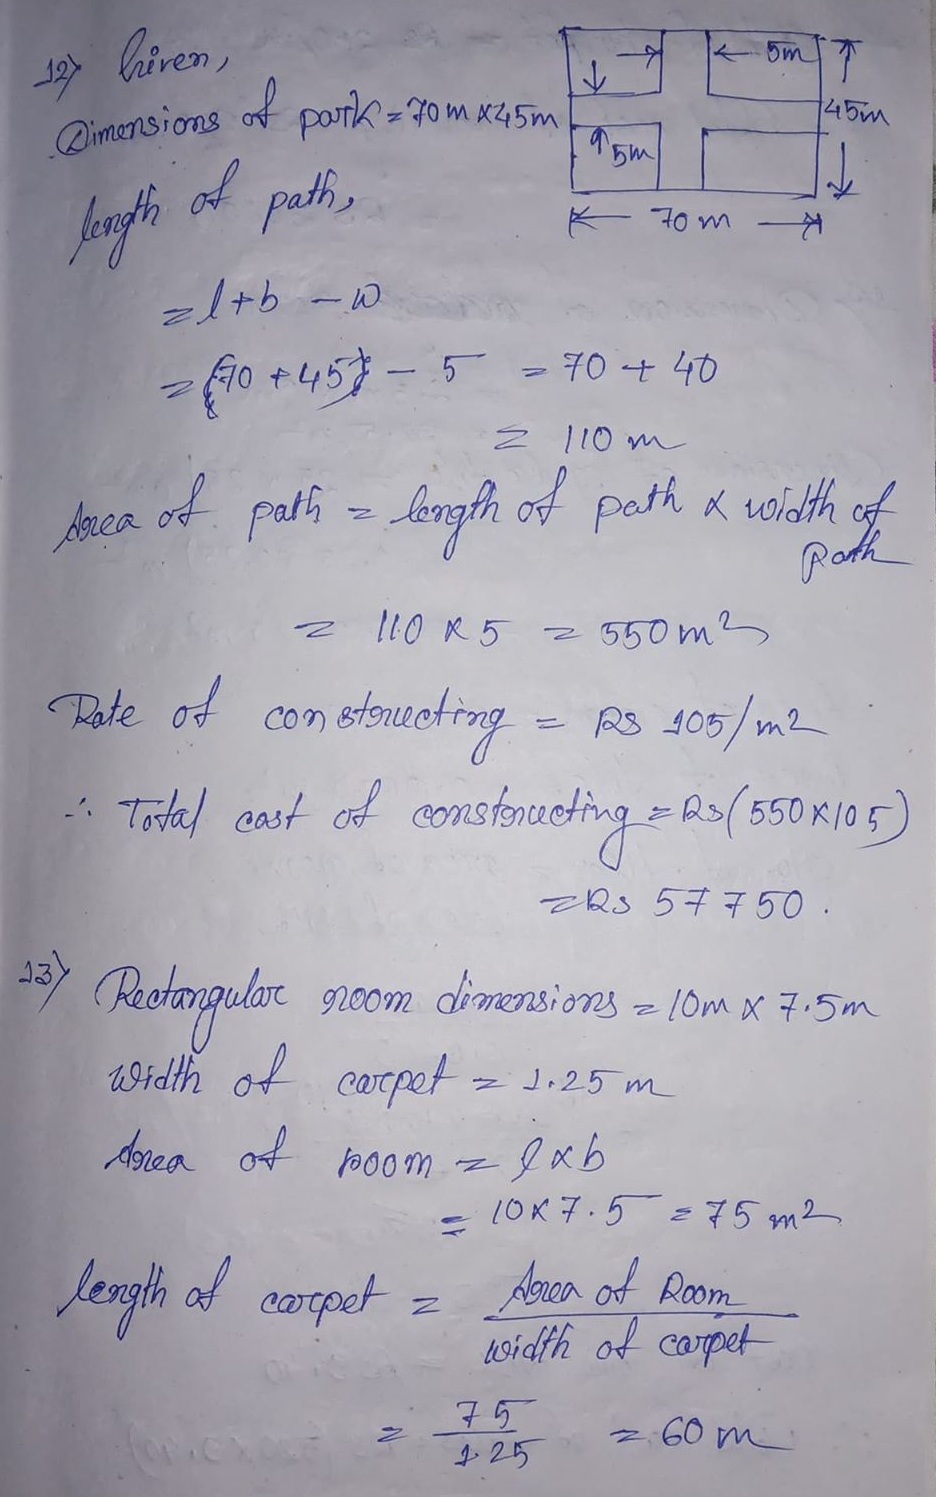 12) Given,
Dimensions of park = 70m x 45m
5m
45m
5m
70 m
length of path,
= l + b - w
= {70 + 45} - 5 = 70 + 40
= 110 m
Area of path = length of path x width of
path
= 110 x 5 = 550 m2
Rate of constructing = Rs 105/m2
∴ Total cost of constructing = Rs (550 x 105)
= Rs 57750.
13) Rectangular room dimensions = 10m x 7.5m
Width of carpet = 1.25 m
Area of room = l x b
= 10 x 7.5 = 75 m2
length of carpet = Area of Room
width of carpet
= 75
1.25 = 60 m